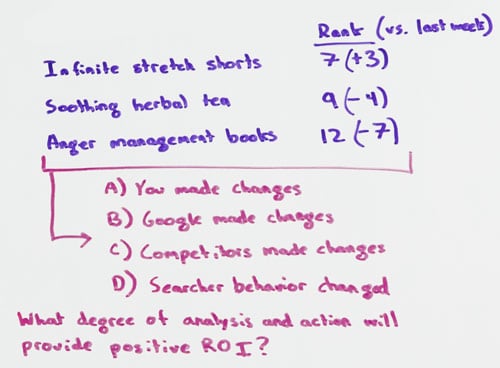 Rank (vs. last week)
Infinite stretch shorts 7 (+3)
Soothing herbal tea 9 (-4)
Anger management books 12 (-7)
A) You made changes
B) Google made changes
C) Competitors made changes
D) Searcher behavior changed
What degree of analysis and action will
provide positive ROI?